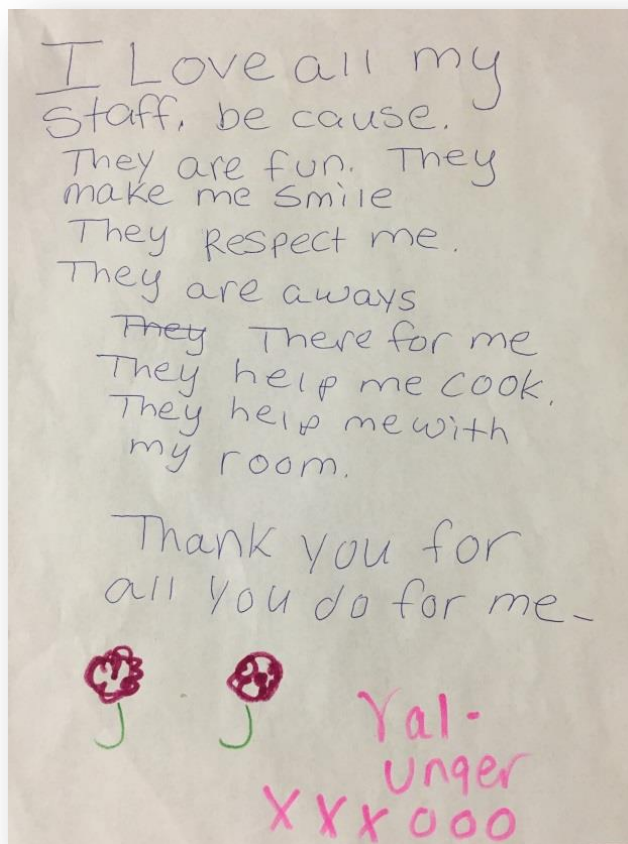 I Love all my
Staff. be cause.
They are fun. They
make me smile
They Respect me.
They are aways
They There for me
They help me cook.
They help me with
my room.
Thank you for
all you do for me-
Val-
unger
XXX000